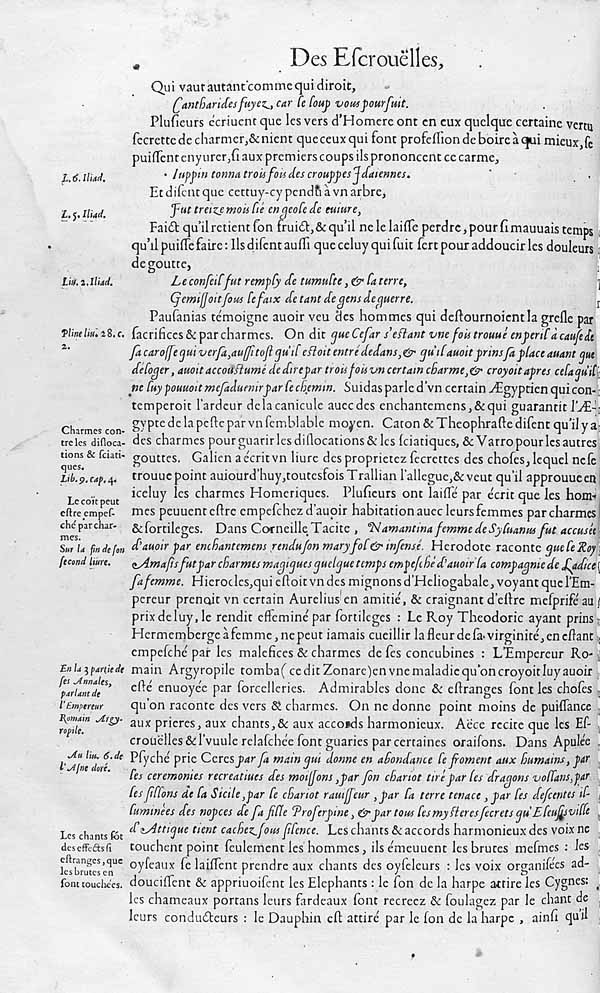 Des Eſcrouëlles,
Qui vaut autant comme qui diroit,
Cantharides fuyez, car le loup vous pourſuit.
Pluſieurs écriuent que les vers d'Homere ont en eux quelque certaine vertu
ſecrette de charmer, & nient que ceux qui font profeſſion de boire à qui mieux, ſe
puiſſent enyurer, ſi aux premiers coups ils prononcent ce carme,
L. 6. Iliad.
Iuppin tonna trois fois des crouppes Idaiennes.
Et diſent que cettuy-cy pendu à vn arbre,
L. 5. Iliad.
Fut treize mois lié en geole de cuiure,
Faict qu'il retient ſon fruict, & qu'il ne le laiſſe perdre, pour ſi mauuais temps
qu'il puiſſe faire: Ils diſent auſſi que celuy qui ſuit ſert pour addoucir les douleurs
de goutte,
Liu. 2. Iliad.
Le conſeil fut remply de tumulte, & la terre,
Gemiſſoit ſous le faix de tant de gens de guerre.
Pauſanias témoigne auoir veu des hommes qui deſtournoient la greſle par
Pline liu. 28. c.
2.
ſacrifices & par charmes. On dit que Ceſar s'eſtant vne fois trouué en peril à cauſe de
ſa caroſſe qui verſa, auſſi toſt qu'il eſtoit entré dedans, & qu'il auoit prins ſa place auant que
déloger, auoit accouſtumé de dire par trois fois vn certain charme, & croyoit apres cela qu'il
ne luy pouuoit meſaduenir par le chemin. Suidas parle d'vn certain Ægyptien qui con-
temperoit l'ardeur de la canicule auec des enchantemens, & qui guarantit l'Æ-
gypte de la peſte par vn ſemblable moyen. Caton & Theophraſte diſent qu'il y a
Charmes con-
tre les diſloca-
tions & ſciati-
ques.
des charmes pour guarir les diſlocations & les ſciatiques, & Varro pour les autres
gouttes. Galien a écrit vn liure des proprietez ſecrettes des choſes, lequel ne ſe
Lib. 9. cap. 4.
trouue point auiourd'huy, toutesfois Trallian l'allegue, & veut qu'il approuue en
iceluy les charmes Homeriques. Pluſieurs ont laiſſé par écrit que les hom-
Le coit peut
eſtre empeſ-
ché par char-
mes.
mes peuuent eſtre empeſchez d'auoir habitation auec leurs femmes par charmes
& ſortileges. Dans Corneille Tacite, Namantina femme de Syluanus fut accuſée
Sur la fin de ſon
ſecond liure.
d'auoir par enchantemens rendu ſon mary fol & inſensé. Herodote raconte que le Roy
Amaſis fut par charmes magiques quelque temps empeſché d'auoir la compagnie de Ladice
ſa femme. Hierocles, qui eſtoit vn des mignons d'Heliogabale, voyant que l'Em-
pereur prenoit vn certain Aurelius en amitié, & craignant d'eſtre meſpriſé au
prix de luy, le rendit effeminé par ſortileges: Le Roy Theodoric ayant prins
Hermemberge à femme, ne peut iamais cueillir la fleur de ſa virginité, en eſtant
empeſché par les malefices & charmes de ſes concubines: L'Empereur Ro-
En la 3 partie de
ſes Annales,
parlant de
l'Empereur
Romain Argy-
ropile.
main Argyropile tomba (ce dit Zonare) en vne maladie qu'on croyoit luy auoir
eſté enuoyée par ſorcelleries. Admirables donc & eſtranges ſont les choſes
qu'on raconte des vers & charmes. On ne donne point moins de puiſſance
aux prieres, aux chants, & aux accords harmonieux. Aëce recite que les Eſ-
crouëlles & l'vuule relaſchée ſont guaries par certaines oraiſons. Dans Apulée
Au liu. 6. de
l'Aſne doré.
Pſyché prie Ceres par ſa main qui donne en abondance le froment aux humains, par
les ceremonies recreatiues des moiſſons, par ſon chariot tiré par les dragons vollans, par
les ſillons de la Sicile, par le chariot rauiſſeur, par la terre tenace, par les deſcentes il-
luminées des nopces de ſa fille Proſerpine, & par tous les myſteres ſecrets qu'Eleuſis ville
d'Attique tient cachez ſous ſilence. Les chants & accords harmonieux des voix ne
Les chants sõt
des effects ſi
eſtranges, que
les brutes en
ſont touchées.
touchent point ſeulement les hommes, ils émeuuent les brutes meſmes: les
oyſeaux ſe laiſſent prendre aux chants des oyſeleurs: les voix organiſées ad-
douciſſent & appriuoiſent les Elephants: le ſon de la harpe attire les Cygnes:
les chameaux portans leurs fardeaux ſont recreez & ſoulagez par le chant de
leurs conducteurs: le Dauphin eſt attiré par le ſon de la harpe, ainſi qu'il